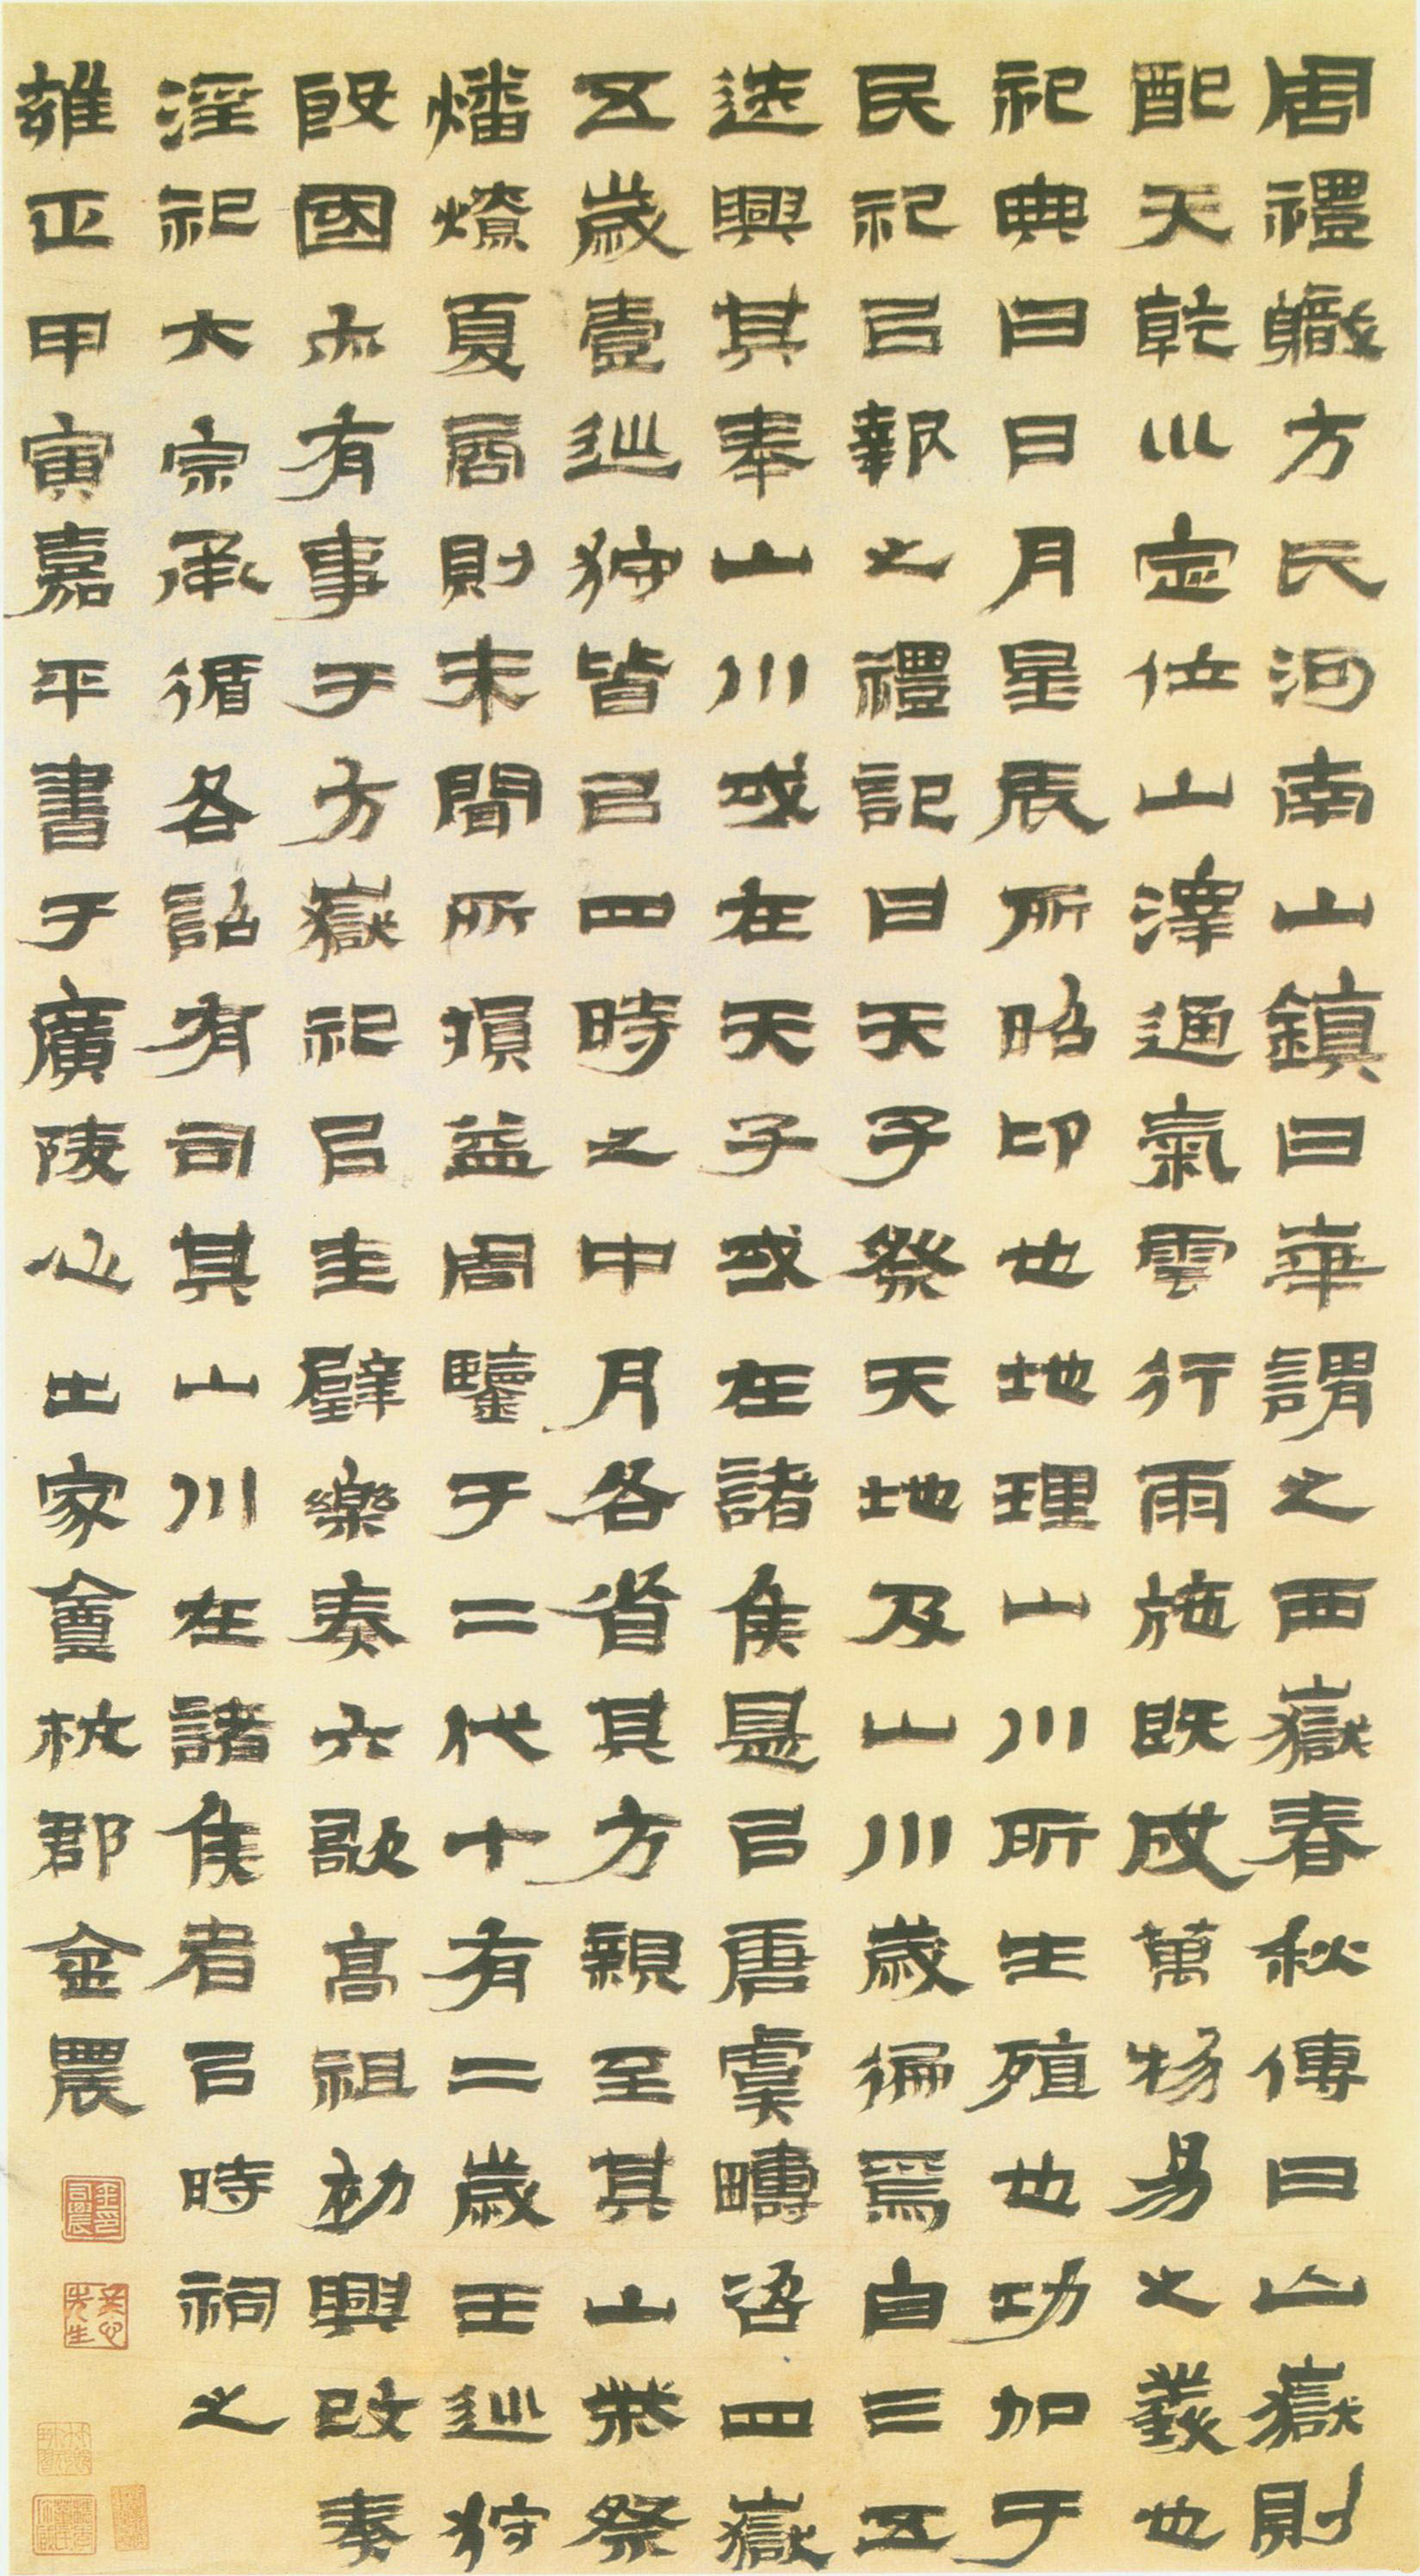 周禮職方氏河南山鎮曰華謂之西嶽春秋傳曰山嶽則
配天乾巛定位山澤通氣雲行雨施既成萬物易之義也
祀典曰日月星辰所昭卬也地理山川所生殖也功加于
民祀㠯報之禮記曰天子祭天地及山川歲徧焉自三五
迭興其奉山川或在天子或在諸侯是㠯唐虞疇咨四嶽
五歲壹巡狩皆㠯四時之中月各省其方親至其山柴祭
燔燎夏商則未聞所損益周鑒于二代十有二歲王巡狩
殷國亦有事于方嶽祀㠯圭璧樂奏六歌高祖初興改秦
淫祀大宗承循各詔有司其山川在諸侯者㠯時祠之
雍正甲寅嘉平書于廣陵心出家盦杭郡金農
金吉金印
先生